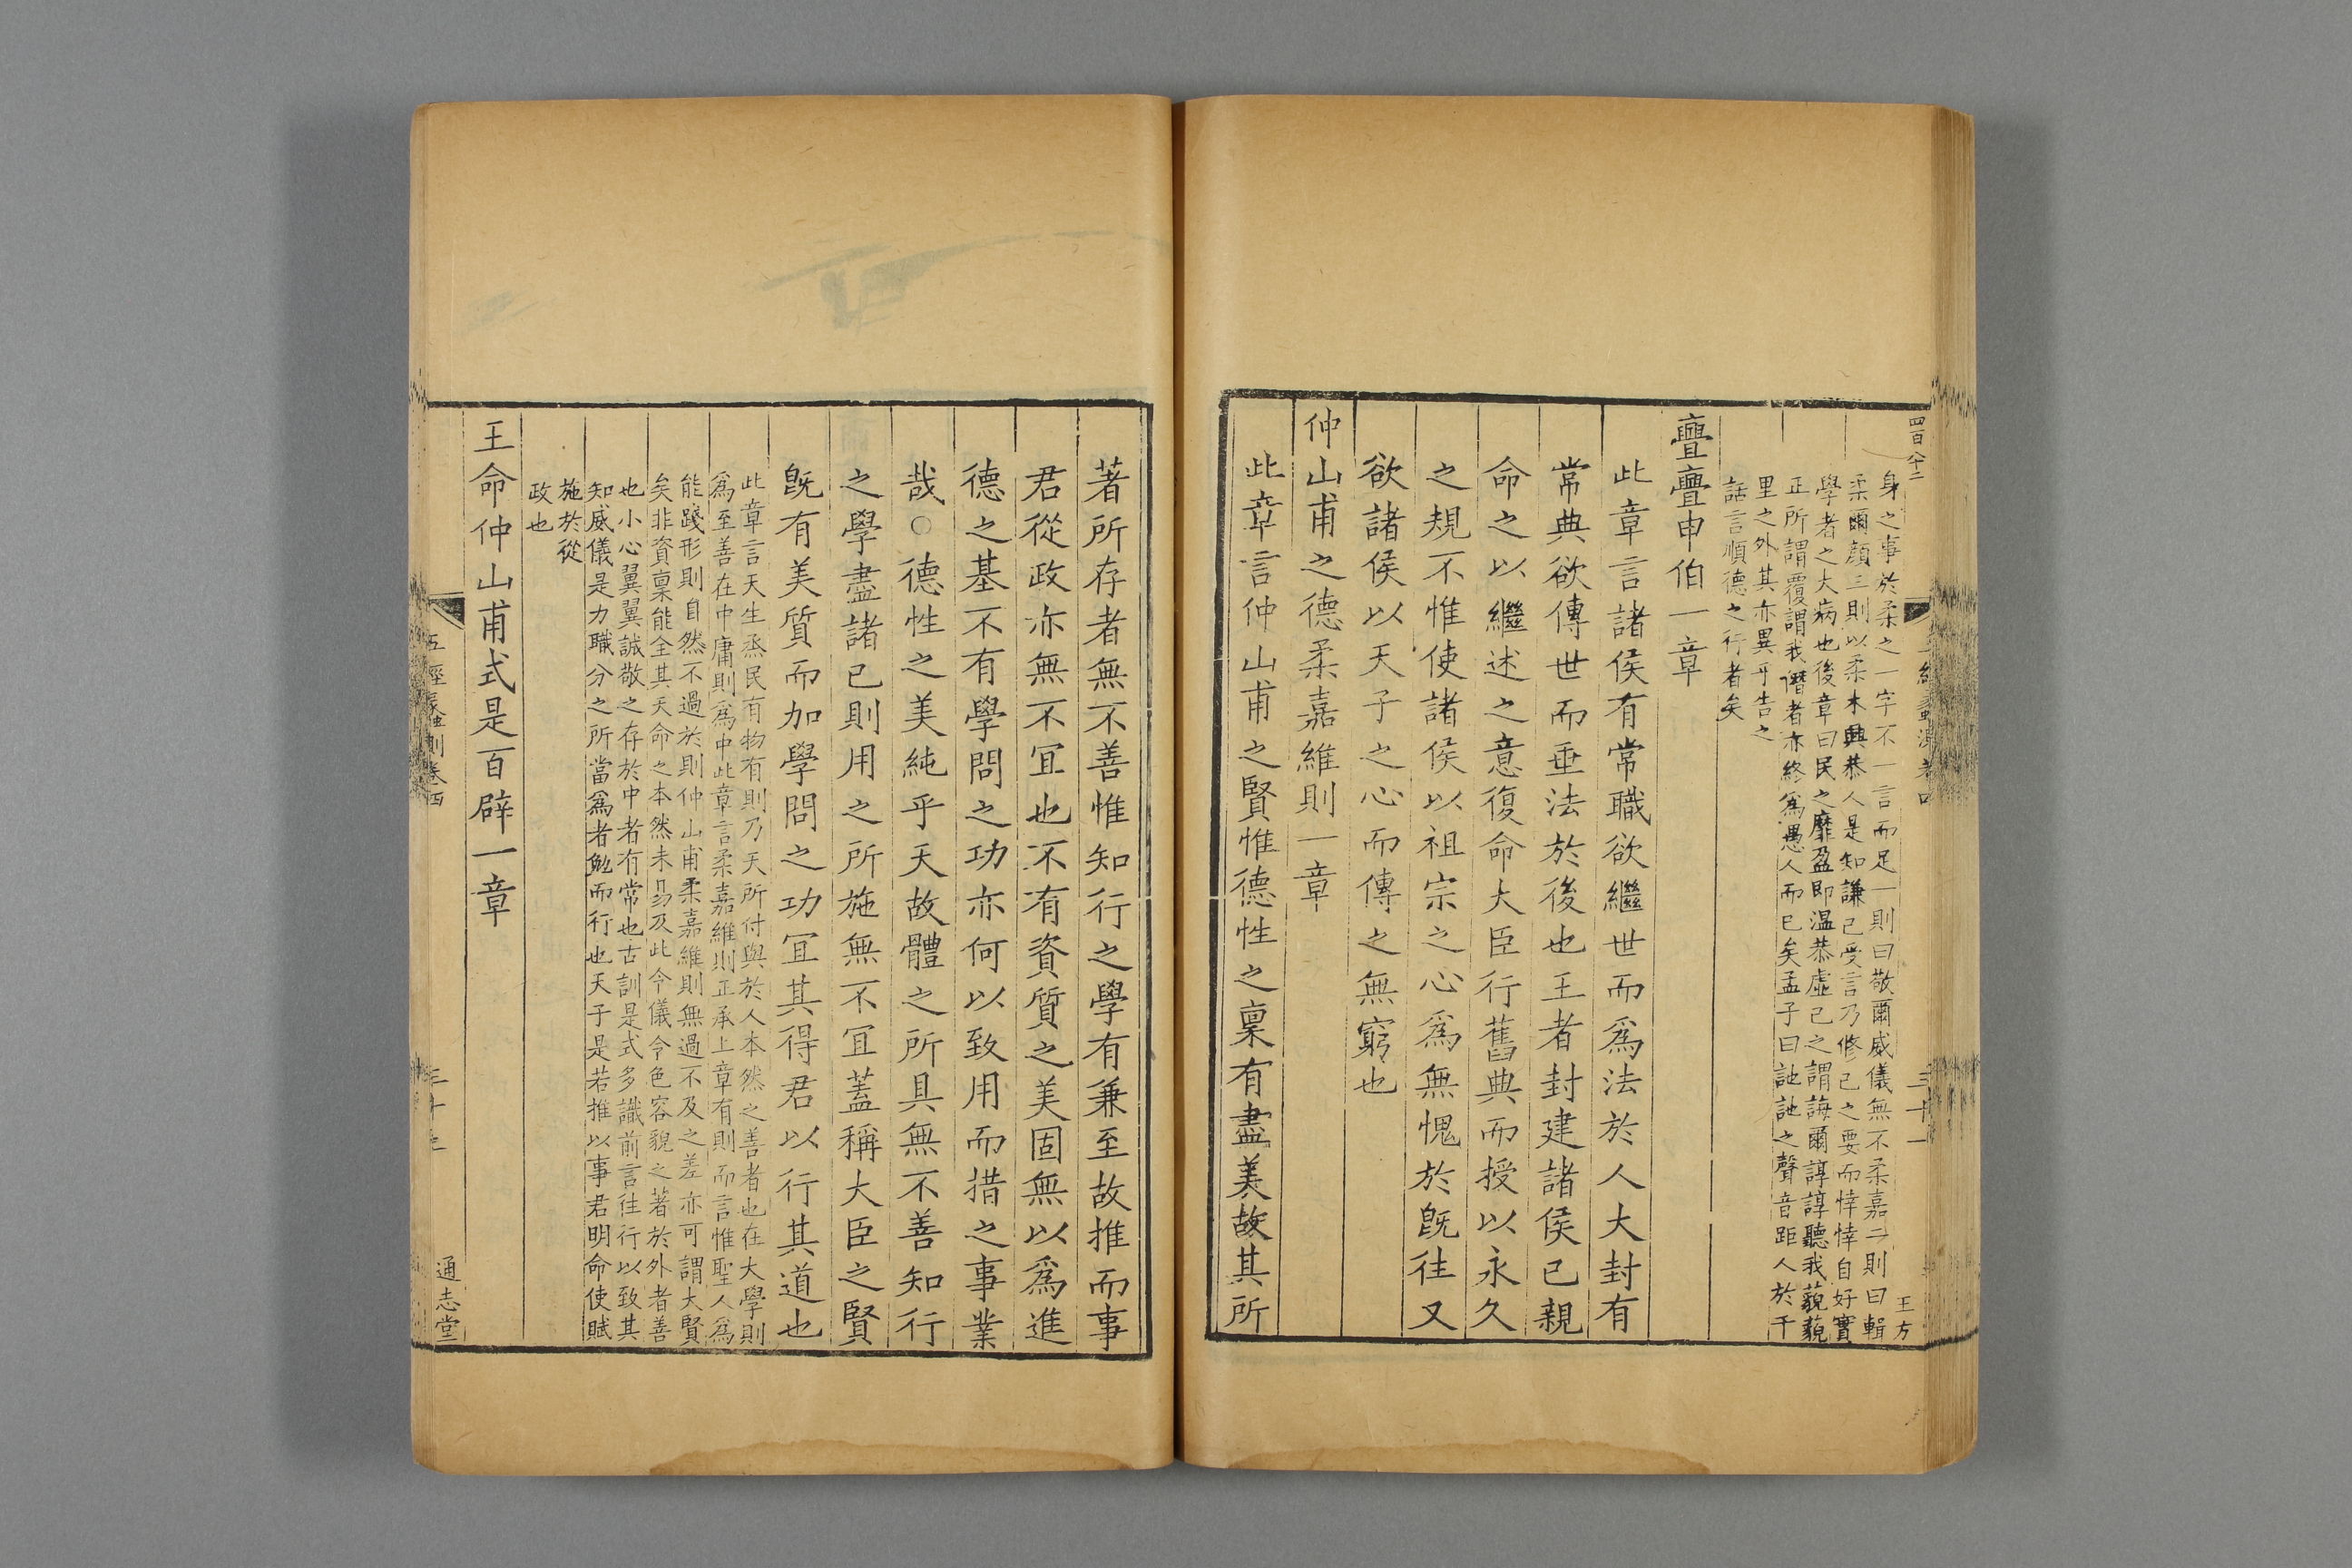 四百八十二
身之事於柔之一字不一言而足一則曰敬爾威儀無不柔嘉二則曰輯
柔爾顔三則以柔木興恭人是知謙己受言乃修己之要而悻悻自好實
學者之大病也後章曰民之靡盈即温恭虛己之謂誨爾諄諄聽我藐藐
正所謂覆謂我僭者亦終爲愚人而已矣孟子曰訑訑之聲音距人於千
里之外其亦異乎告之
話言順德之行者矣
亹亹申伯一章
此章言諸侯有常職欲繼世而爲法於人大封有
常典欲傳世而垂法於後也王者封建諸侯已親
命之以繼述之意復命大臣行舊典而授以永久
之規不惟使諸侯以祖宗之心爲無愧於旣往又
欲諸侯以天子之心而傳之無窮也
仲山甫之德柔嘉維則一章
此章言仲山甫之賢惟德性之稟有盡美故其所
三十一
王方
著所存者無不善惟知行之學有兼至故推而事
君從政亦無不冝也不有資質之美固無以爲進
德之基不有學問之功亦何以致用而措之事業
哉○德性之美純乎天故體之所具無不善知行
之學盡諸已則用之所施無不冝蓋稱大臣之賢
旣有美質而加學問之功冝其得君以行其道也
此章言天生烝民有物有則乃天所付與於人本然之善者也在大學則
爲至善在中庸則爲中此章言柔嘉維則正承上章有則而言惟聖人爲
能踐形則自然不過於則仲山甫柔嘉維則無過不及之差亦可謂大賢
矣非資稟能全其天命之本然未易及此令儀令色容貌之著於外者善
也小心翼翼誠敬之存於中者有常也古訓是式多識前言往行以致其
知威儀是力職分之所當爲者勉而行也天子是若推以事君明命使賦
施於從
政也
王命仲山甫式是百辟一章
五經蠡測卷四
通志堂